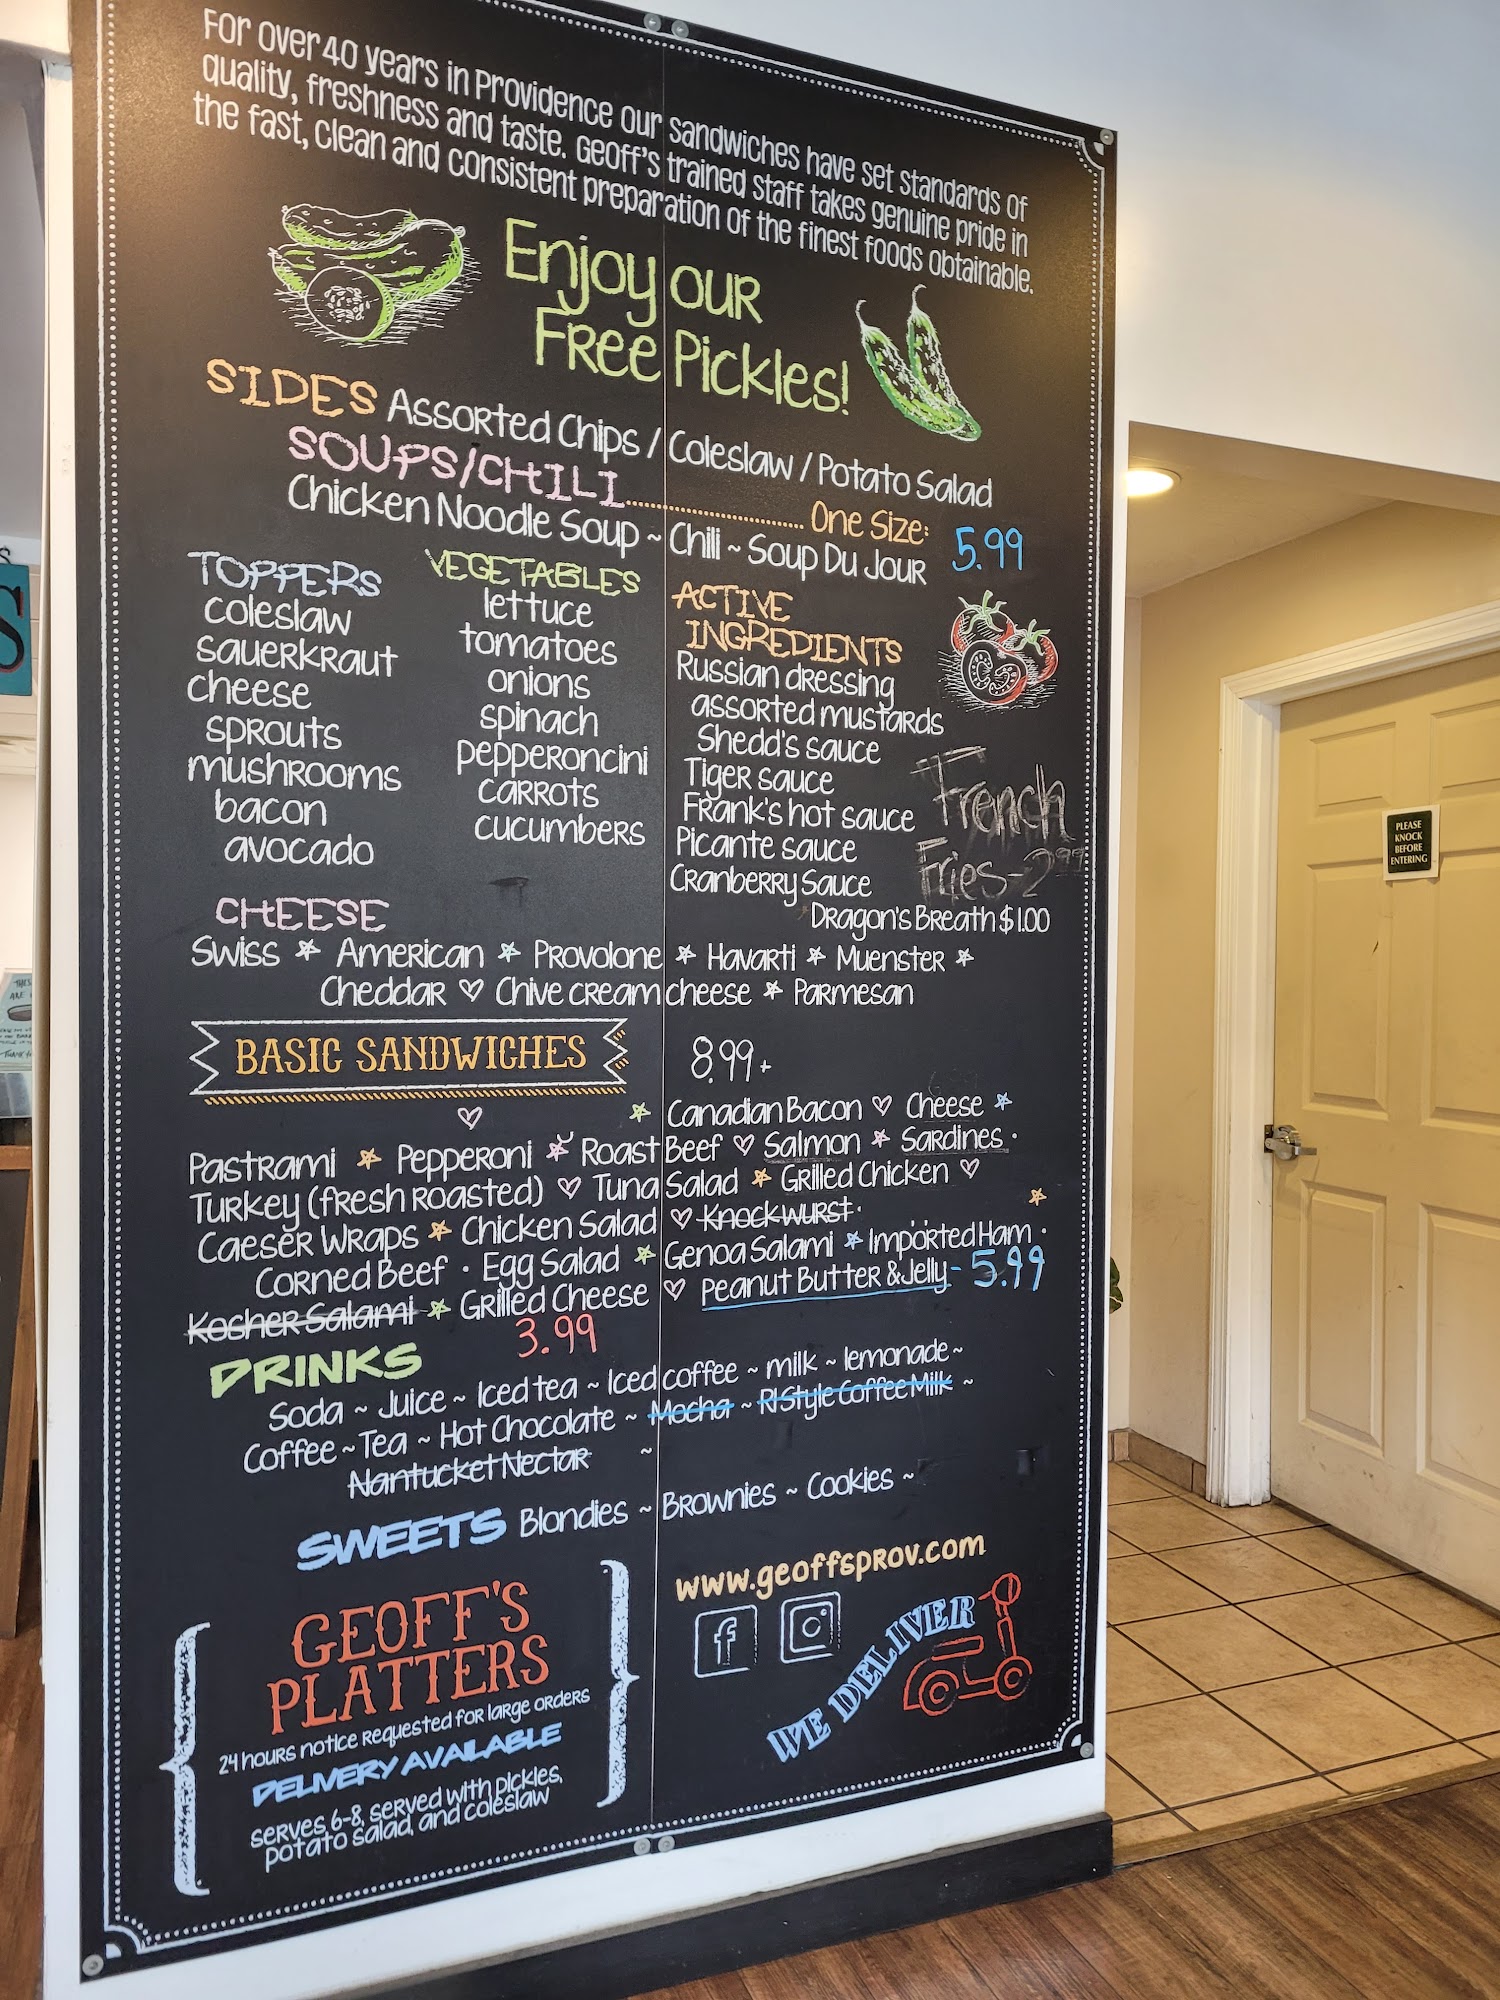 For over 40 years in Providence our sandwiches have set standards of
quality, freshness and taste. Geoff's trained staff takes genuine pride in
the fast, clean and consistent preparation of the finest foods obtainable.
Enjoy our
Free Pickles!
SIDES Assorted Chips / Coleslaw / Potato Salad
SOUPS/CHILI.......................... One Size: 5.99
Chicken Noodle Soup ~ Chili ~ Soup Du Jour
TOPPERS
coleslaw
sauerkraut
cheese
sprouts
mushrooms
bacon
avocado
VEGETABLES
lettuce
tomatoes
onions
spinach
pepperoncini
carrots
cucumbers
ACTIVE
INGREDIENTS
Russian dressing
assorted mustards
Shedd's sauce
Tiger sauce
Frank's hot sauce
Picante sauce
Cranberry Sauce
Dragon's Breath $1.00
French
Fries-2.99
CHEESE
Swiss * American * Provolone * Havarti * Muenster *
Cheddar ♡ Chive cream cheese * Parmesan
BASIC SANDWICHES 8.99+
Canadian Bacon ♡ Cheese *
Pastrami * Pepperoni * Roast Beef ♡ Salmon * Sardines ·
Turkey (fresh roasted) ♡ Tuna Salad * Grilled Chicken ♡
Caeser Wraps * Chicken Salad ♡ Knockwurst ·
Corned Beef · Egg Salad * Genoa Salami * Imported Ham ·
Kosher Salami * Grilled Cheese ♡ Peanut Butter & Jelly - 5.99
3.99
DRINKS
Soda ~ Juice ~ Iced tea ~ Iced coffee ~ milk ~ lemonade ~
Coffee ~ Tea ~ Hot Chocolate ~ Mocha ~ RI Style Coffee Milk ~
Nantucket Nectar ~
SWEETS Blondies ~ Brownies ~ Cookies ~
GEOFF'S
PLATTERS
24 hours notice requested for large orders
DELIVERY AVAILABLE
serves 6-8, served with pickles,
potato salad, and coleslaw
www.geoffsprov.com
f
WE DELIVER
PLEASE
KNOCK
BEFORE
ENTERING
S